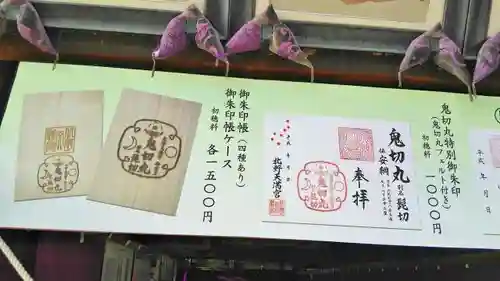 鬼切丸特別御朱印
(鬼切丸フェルト付き)
初穂料 一〇〇〇円
鬼切丸
別名 髭切
伝 安綱
奉拝
北野天満宮
平成 年 月 日
御朱印帳(四種あり)
御朱印帳ケース
初穂料 各一五〇〇円
鬼切丸
鬼切丸
年 月 日